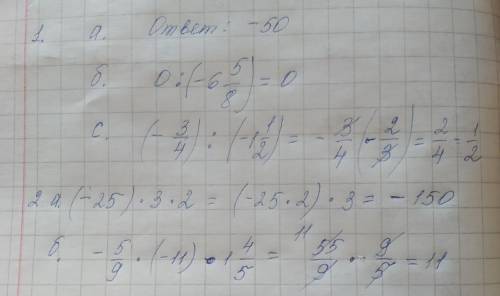 1. а. Ответ: -50
б. 0 : (-6 5/8) = 0
с. (-3/4) : (-1 1/2) = -3/4 (-2/3) = 2/4 = 1/2
2 а. (-25) · 3 · 2 = (-25 · 2) · 3 = -150
б. -5/9 · (-11) · 1 4/5 = 11 55/9 · 9/5 = 11